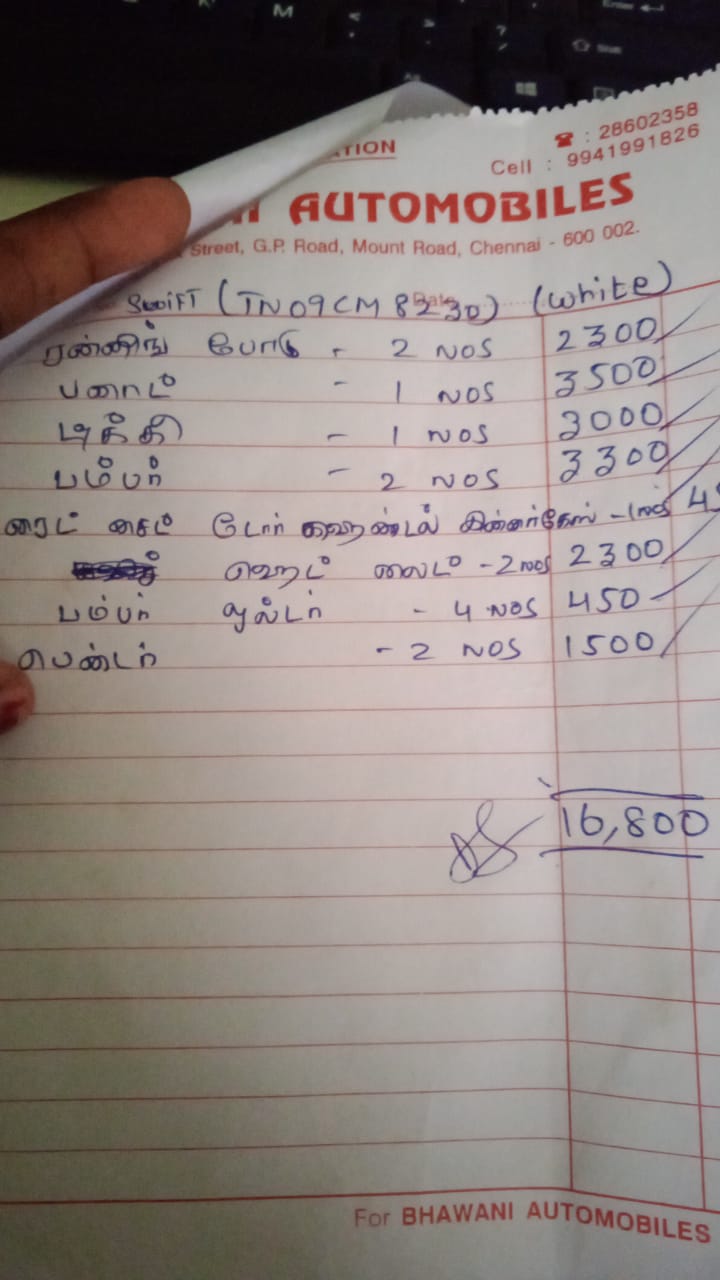 ☎ : 28602358
Cell : 9941991826
AUTOMOBILES
Street, G.P. Road, Mount Road, Chennai - 600 002.
Date
SWIFT (TN09CM 8230) (White)
ரன்னிங் போடு - 2 NOS 2300
- 1 NOS 3500
டிக்கி - 1 NOS 3000
பம்பர் - 2 NOS 3300
ரைட் சைட் டோர் ஹேண்டல் இன்னர்கேஸ் - 1NOS
ஹெட் லைட் - 2 NOS 2300
பம்பர் - 4 NOS 450
பெண்டர் - 2 NOS 1500
16,800
For BHAWANI AUTOMOBILES